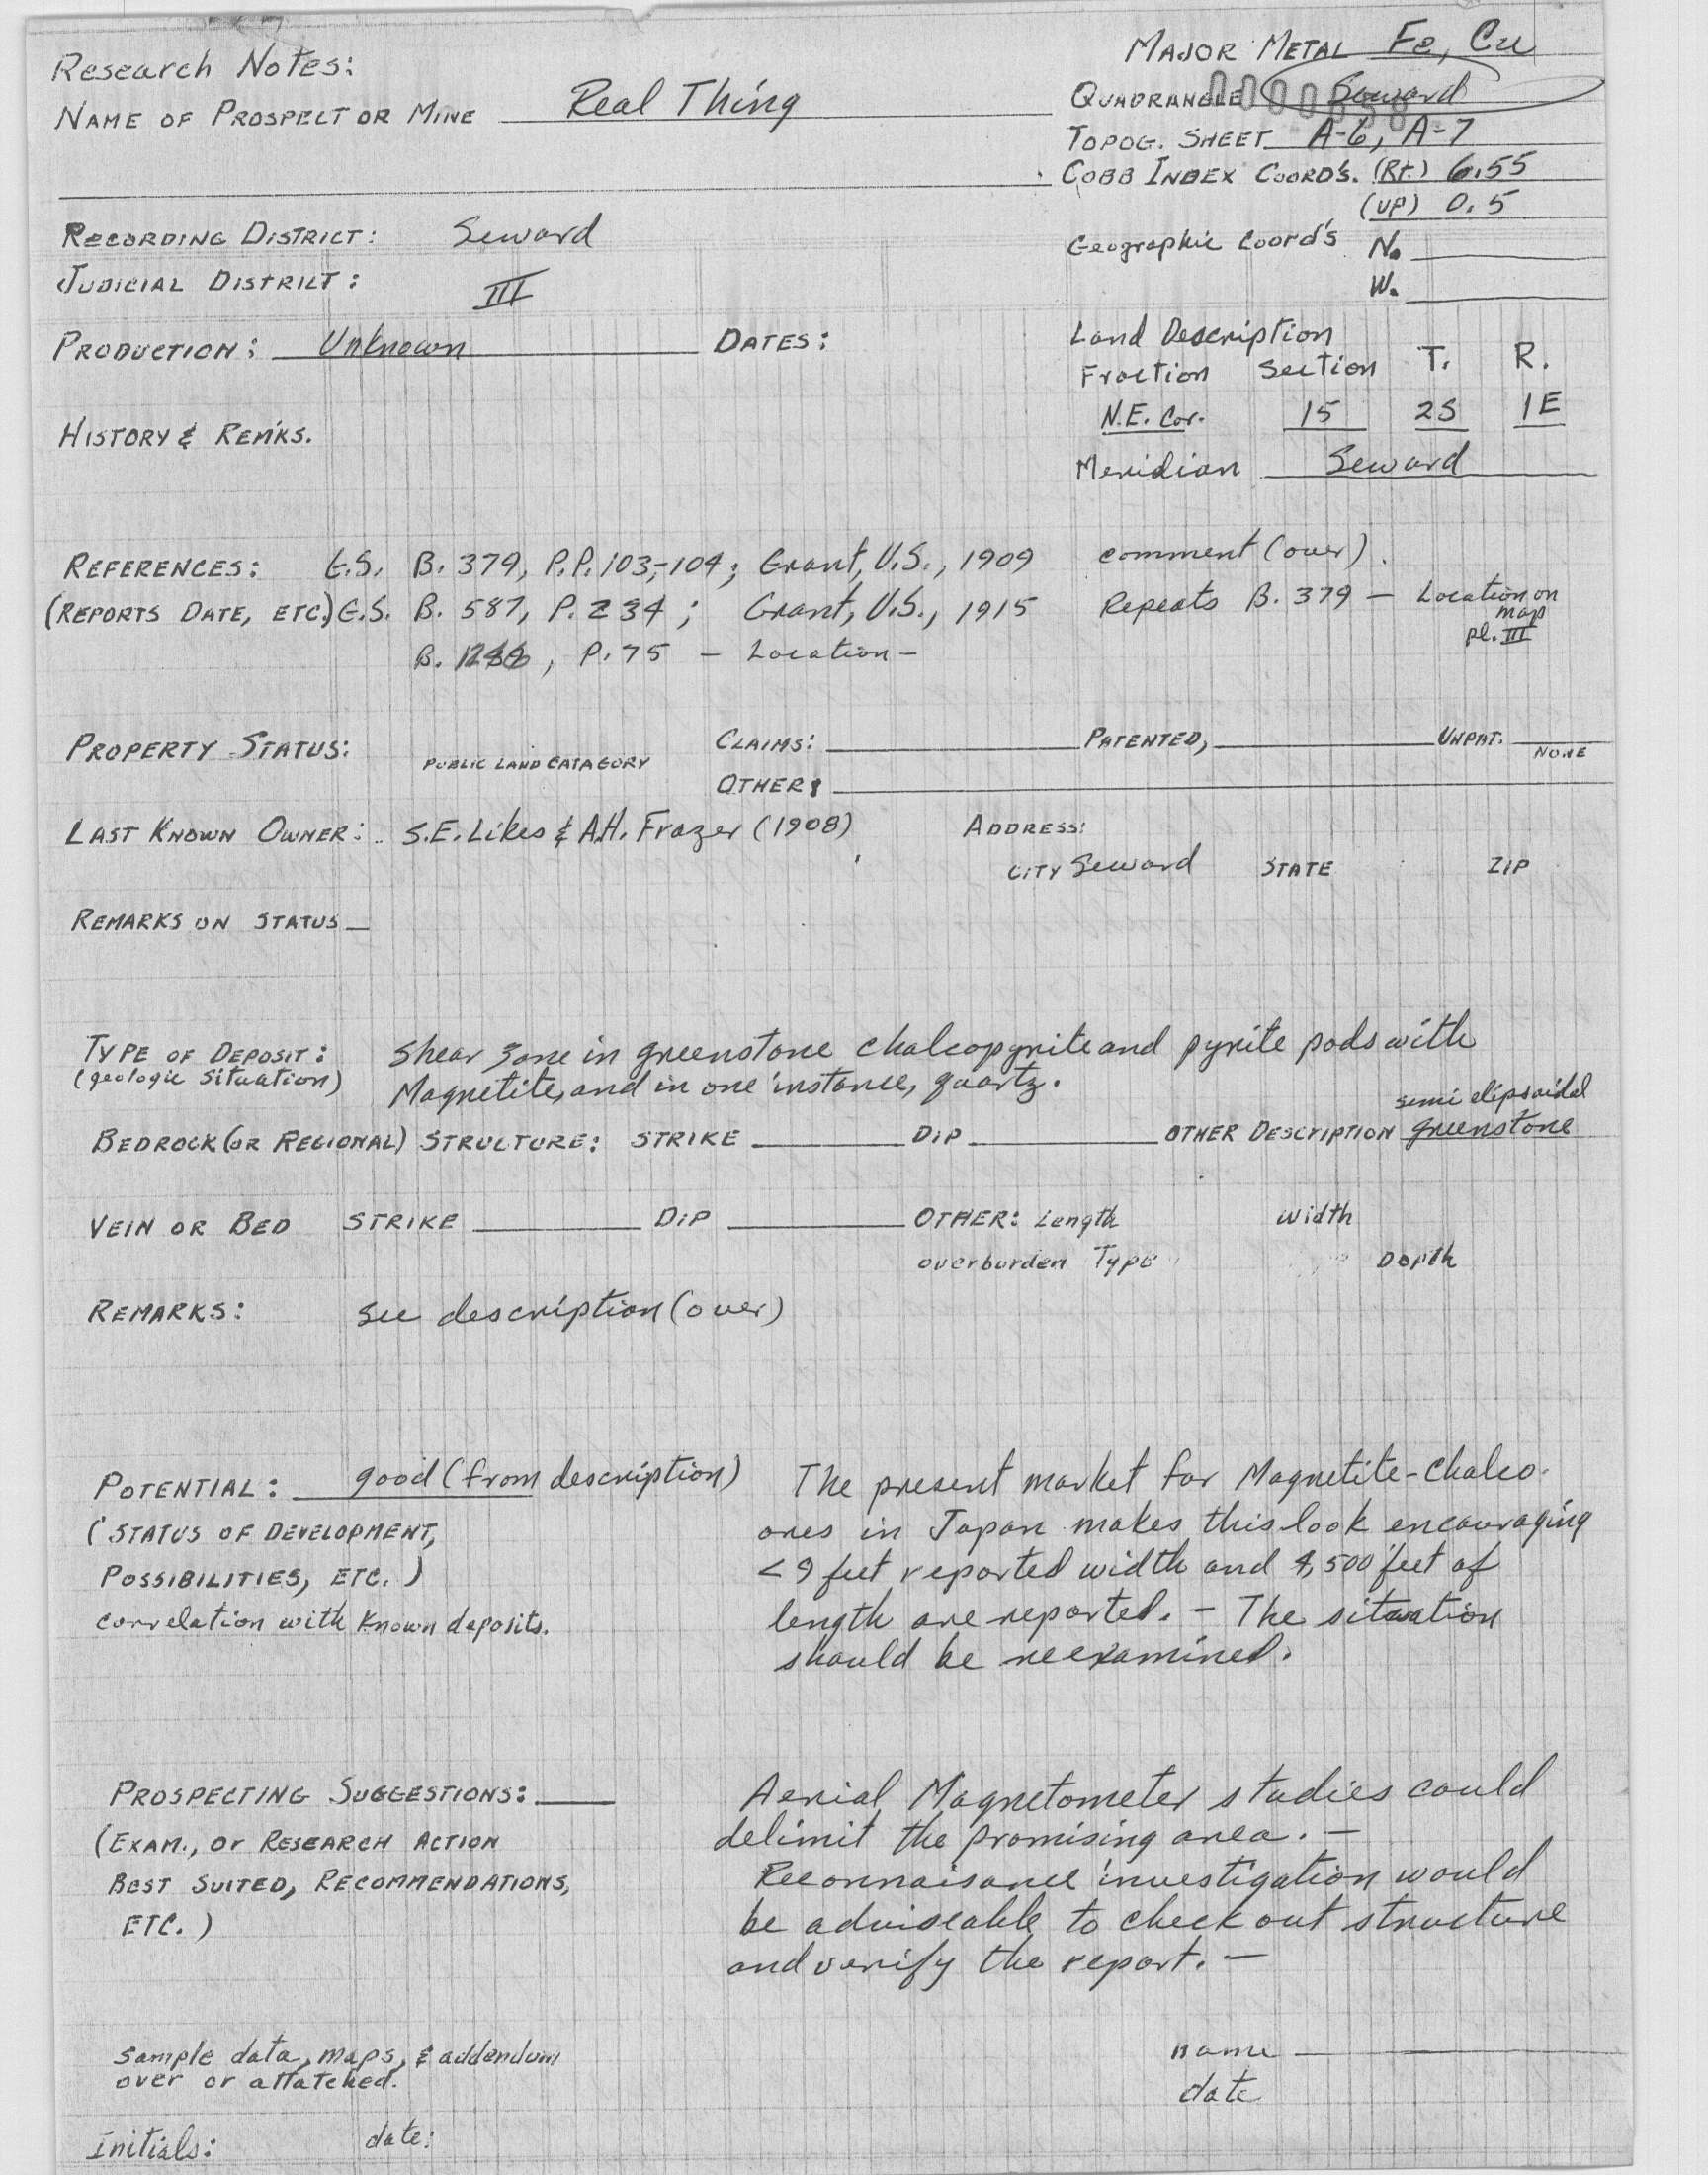 Research Notes:
MAJOR METAL Fe, Cu
NAME OF PROSPECT OR MINE Real Thing
QUADRANGLE Seward
TOPOG. SHEET A-6, A-7
COBB INDEX COORD'S. (Rt.) 6.55
(UP) 0.5
RECORDING DISTRICT: Seward
Geographic Coord's N.
W.
JUDICIAL DISTRICT: III
PRODUCTION: Unknown DATES:
Land Description
Fraction Section T. R.
N.E. Cor. 15 2S 1E
HISTORY & REM'KS.
Meridian Seward
REFERENCES: G.S. B. 379, P.P. 103,-104; Grant, U.S., 1909 comment (over).
(REPORTS DATE, ETC.) G.S. B. 587, P. 234; Grant, U.S., 1915 Repeats B. 379 - Location on
map
pl. III
B. , P. 75 - Location -
PROPERTY STATUS: CLAIMS: PATENTED, UNPAT.
NONE
PUBLIC LAND CATAGORY
OTHER:
LAST KNOWN OWNER: S.E. Likes & A.H. Frazer (1908) ADDRESS:
CITY Seward STATE ZIP
REMARKS ON STATUS
TYPE OF DEPOSIT: Shear zone in greenstone chalcopyrite and pyrite pods with
(geologic situation) Magnetite, and in one instance, quartz.
semi elipsoidal
BEDROCK (OR REGIONAL) STRUCTURE: STRIKE DIP OTHER DESCRIPTION greenstone
VEIN OR BED STRIKE DIP OTHER: Length Width
overburden Type Depth
REMARKS: see description (over)
POTENTIAL: good (from description) The present market for Magnetite-Chalco.
(STATUS OF DEVELOPMENT, ores in Japan makes this look encouraging
POSSIBILITIES, ETC.) <9 feet reported width and feet of
correlation with known deposits. length are reported. - The situation
should be reexamined.
PROSPECTING SUGGESTIONS: Aerial Magnetometer studies could
(EXAM., or RESEARCH ACTION delimit the promising area. -
BEST SUITED, RECOMMENDATIONS, Reconnaisance investigation would
ETC.) be adviseable to check out structure
and verify the report. -
Sample data, maps, & addendum
over or attatched.
name
date
Initials: date: